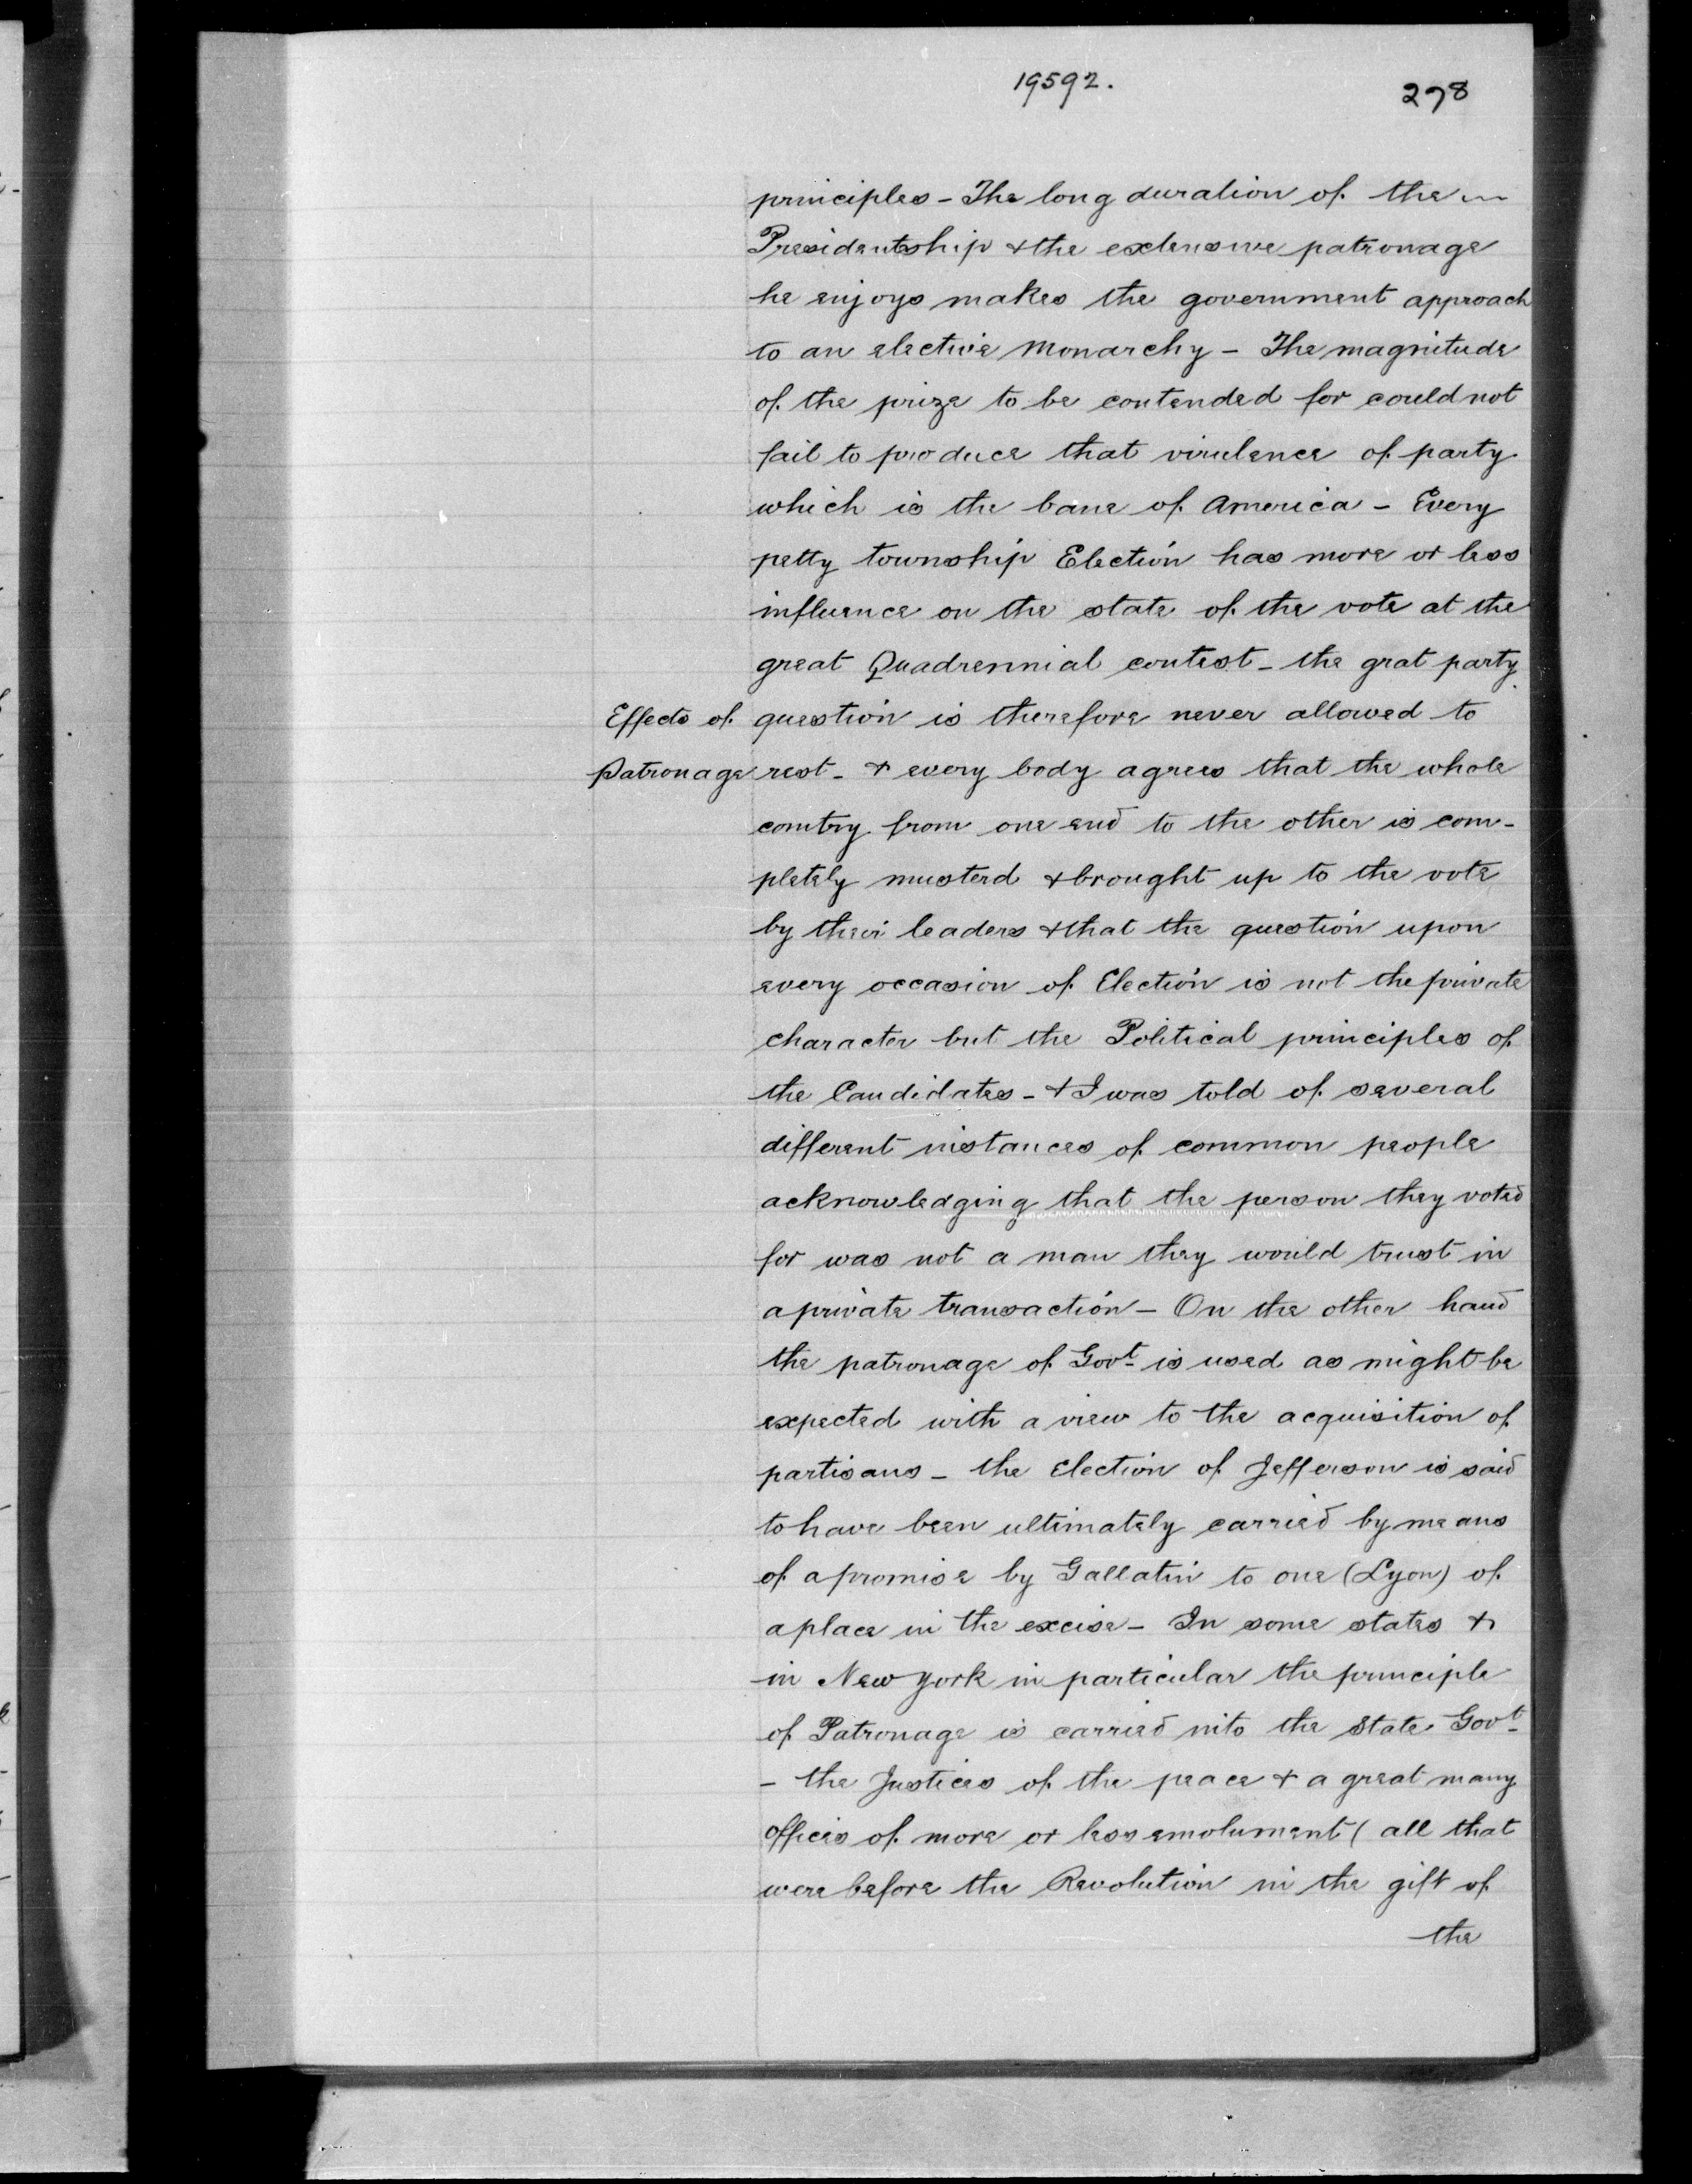 19592.
278
principles - The long duration of the
Presidentship & the extensive patronage
he enjoys makes the government approach
to an elective Monarchy - The magnitude
of the prize to be contended for could not
fail to produce that virulence of party
which is the bane of America - Every
petty township Election has more or less
influence on the state of the vote at the
great Quadrennial contest - the grat party
Effects of question is therefore never allowed to
Patronage rest - & every body agrees that the whole
comtry from one end to the other is com-
pletely musterd & brought up to the vote
by their leaders & that the question upon
every occasion of Election is not the private
character but the Political principles of
the Candidates - & I was told of several
different instances of common people
acknowledging that the person they voted
for was not a man they would trust in
a private transaction - On the other hand
the patronage of Govt is used as might be
expected with a view to the acquisition of
partisans - the Election of Jefferson is said
to have been ultimately carried by means
of a promise by Gallatin to one (Lyon) of
a place in the excise - In some states &
in New York in particular the principle
of Patronage is carried into the State Govt
- the Justices of the peace & a great many
offices of more or less emolument ( all that
were before the Revolution in the gift of
the